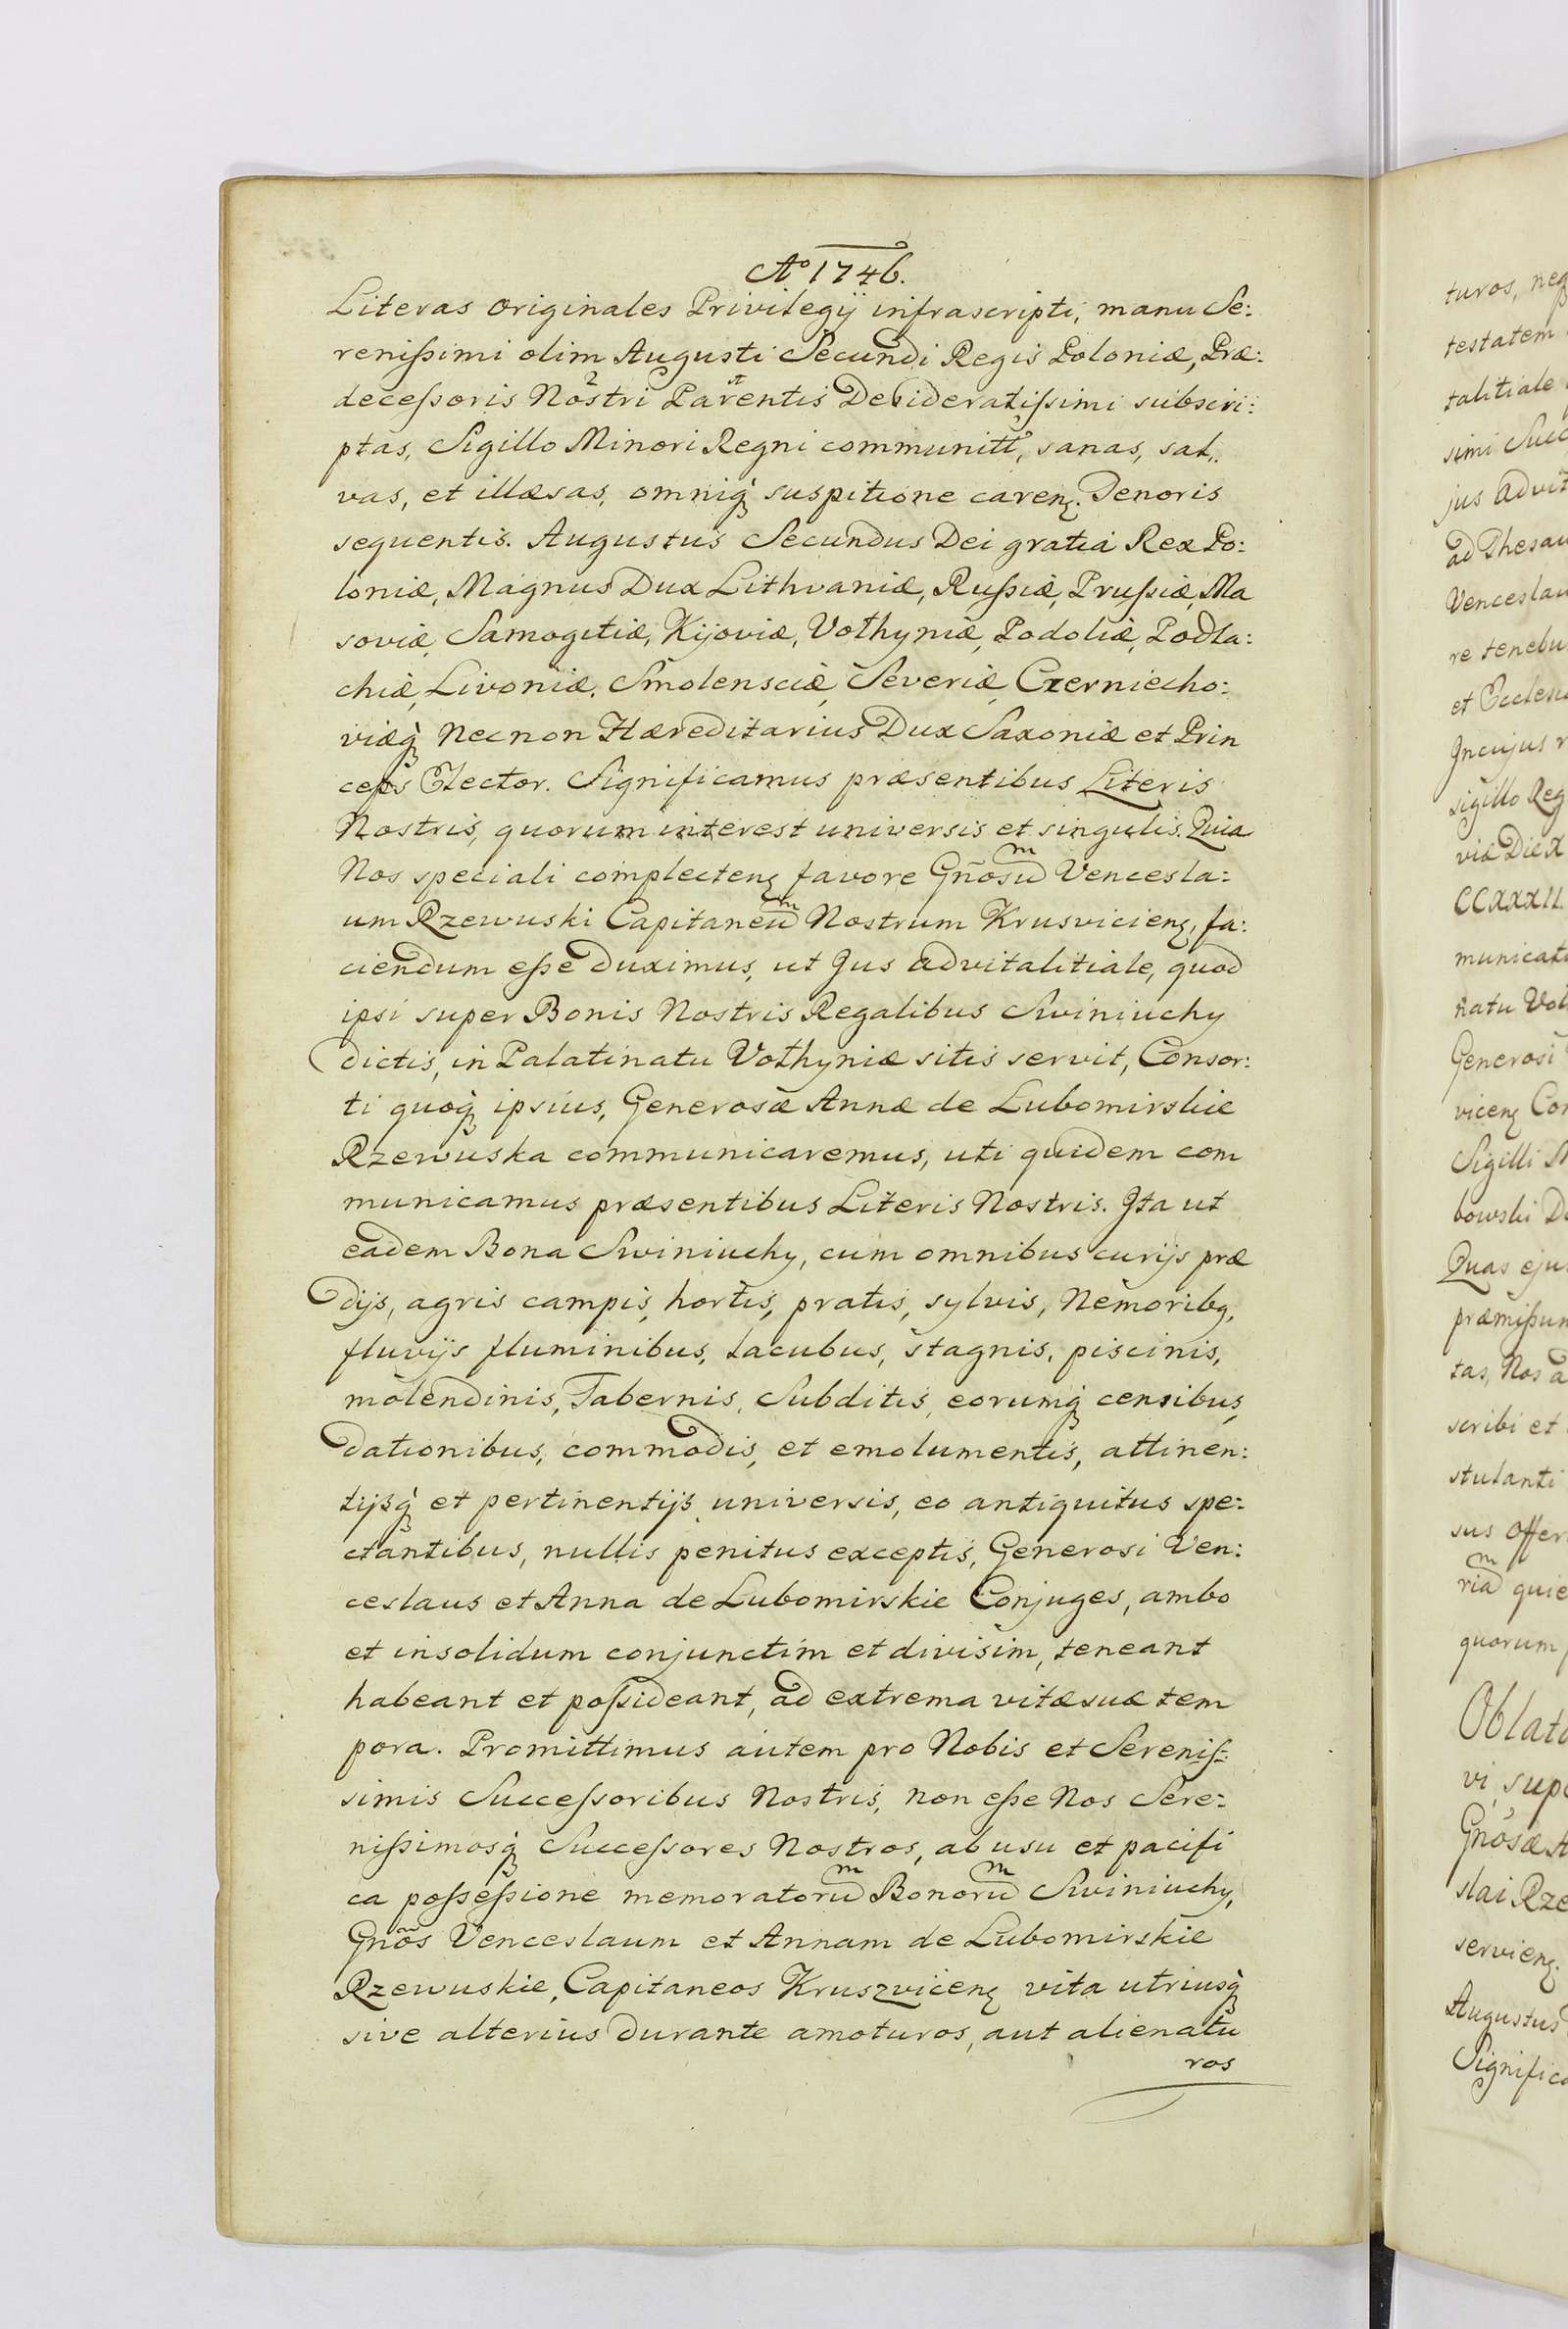 Aº 1746.
Literas originales Privilegij infrascripti, manu Se:
renißimi olim Augusti Secundi Regis Poloniæ, Præ:
deceßoris Nostri Parentis Desideratißimi subscri:
ptas, Sigillo Minori Regni communitt, sanas, sal,,
vas, et illæsas, omniq̀ suspitione carenꝫ. Tenoris
sequentis. Augustus Secundus Dei gratia Rex Po:
loniæ, Magnus Dux Lithvaniæ, Rußiæ, Prußiæ, Ma
soviæ, Samogitiæ, Kijoviæ, Vołhyniæ, Podoliæ, Podla:
chiæ, Livoniæ, Smolensciæ, Severiæ, Czerniecho:
viæq̀ Necnon Hæreditarius Dux Saxoniæ et Prin
ceps Elector. Significamus præsentibus Literis
Nostris, quorum interest universis et singulis. Quia
Nos speciali complectenꝫ favore Gñosum Vencesla:
um Rzewuski Capitaneum Nostrum Krusvicienꝫ, fa:
ciendum eße duximus, ut Jus advitalitiale, quod
ipsi super Bonis Nostris Regalibus Swiniuchy
dictis, in Palatinatu Vołhyniæ sitis servit, Consor:
ti quoq̀ ipsius, Generosæ Annæ de Lubomirskie
Rzewuska communicaremus, uti quidem com
municamus præsentibus Literis Nostris. Jta ut
eadem Bona Swiniuchy, cum omnibus curijs præ
dijs, agris campis, hortis, pratis, sylvis, Nemoribꝫ,
fluvijs fluminibus, lacubus, stagnis, piscinis,
molendinis, Tabernis, Subditis, eorumq̀ censibus,
dationibus, commodis, et emolumentis, attinen:
tijsq̀ et pertinentijs universis, eo antiquitus spe:
ctantibus, nullis penitus exceptis, Generosi Ven:
ceslaus et Anna de Lubomirskie Conjuges, ambo
et insolidum conjunctim et divisim, teneant
habeant et poßideant, ad extrema vitæ suæ tem
pora. Promittimus autem pro Nobis et Sereniſ:
simis Succeßoribus Nostris, non eße Nos Sere:
nißimosq̀ Succeßores Nostros, ab usu et pacifi
ca poßeßione memoratorum Bonorum Swiniuchy,
Gños Venceslaum et Annam de Lubomirskie
Rzewuskie, Capitaneos Kruszvicenꝫ vita utriusq̀
sive alterius durante amoturos, aut alienatu
ros
turos, neq
testatem
talitiale
simi Succ
jus advit
ad Thesau
Venceslau
re tenebu
et Eccles
Jn cujus r
sigillo Reg
viæ Die X
CCXXXII.
municat
natu Voł
Generosi
vicenꝫ Con
Sigilli M
bowski D
Quas eju
præmißum
tas, Nos a
scribi et
stulanti
sus offer
riam quie
quorum
Oblata
vi, supe
Gñosæ A
slai Rze
servienꝫ.
Augustus
Significa